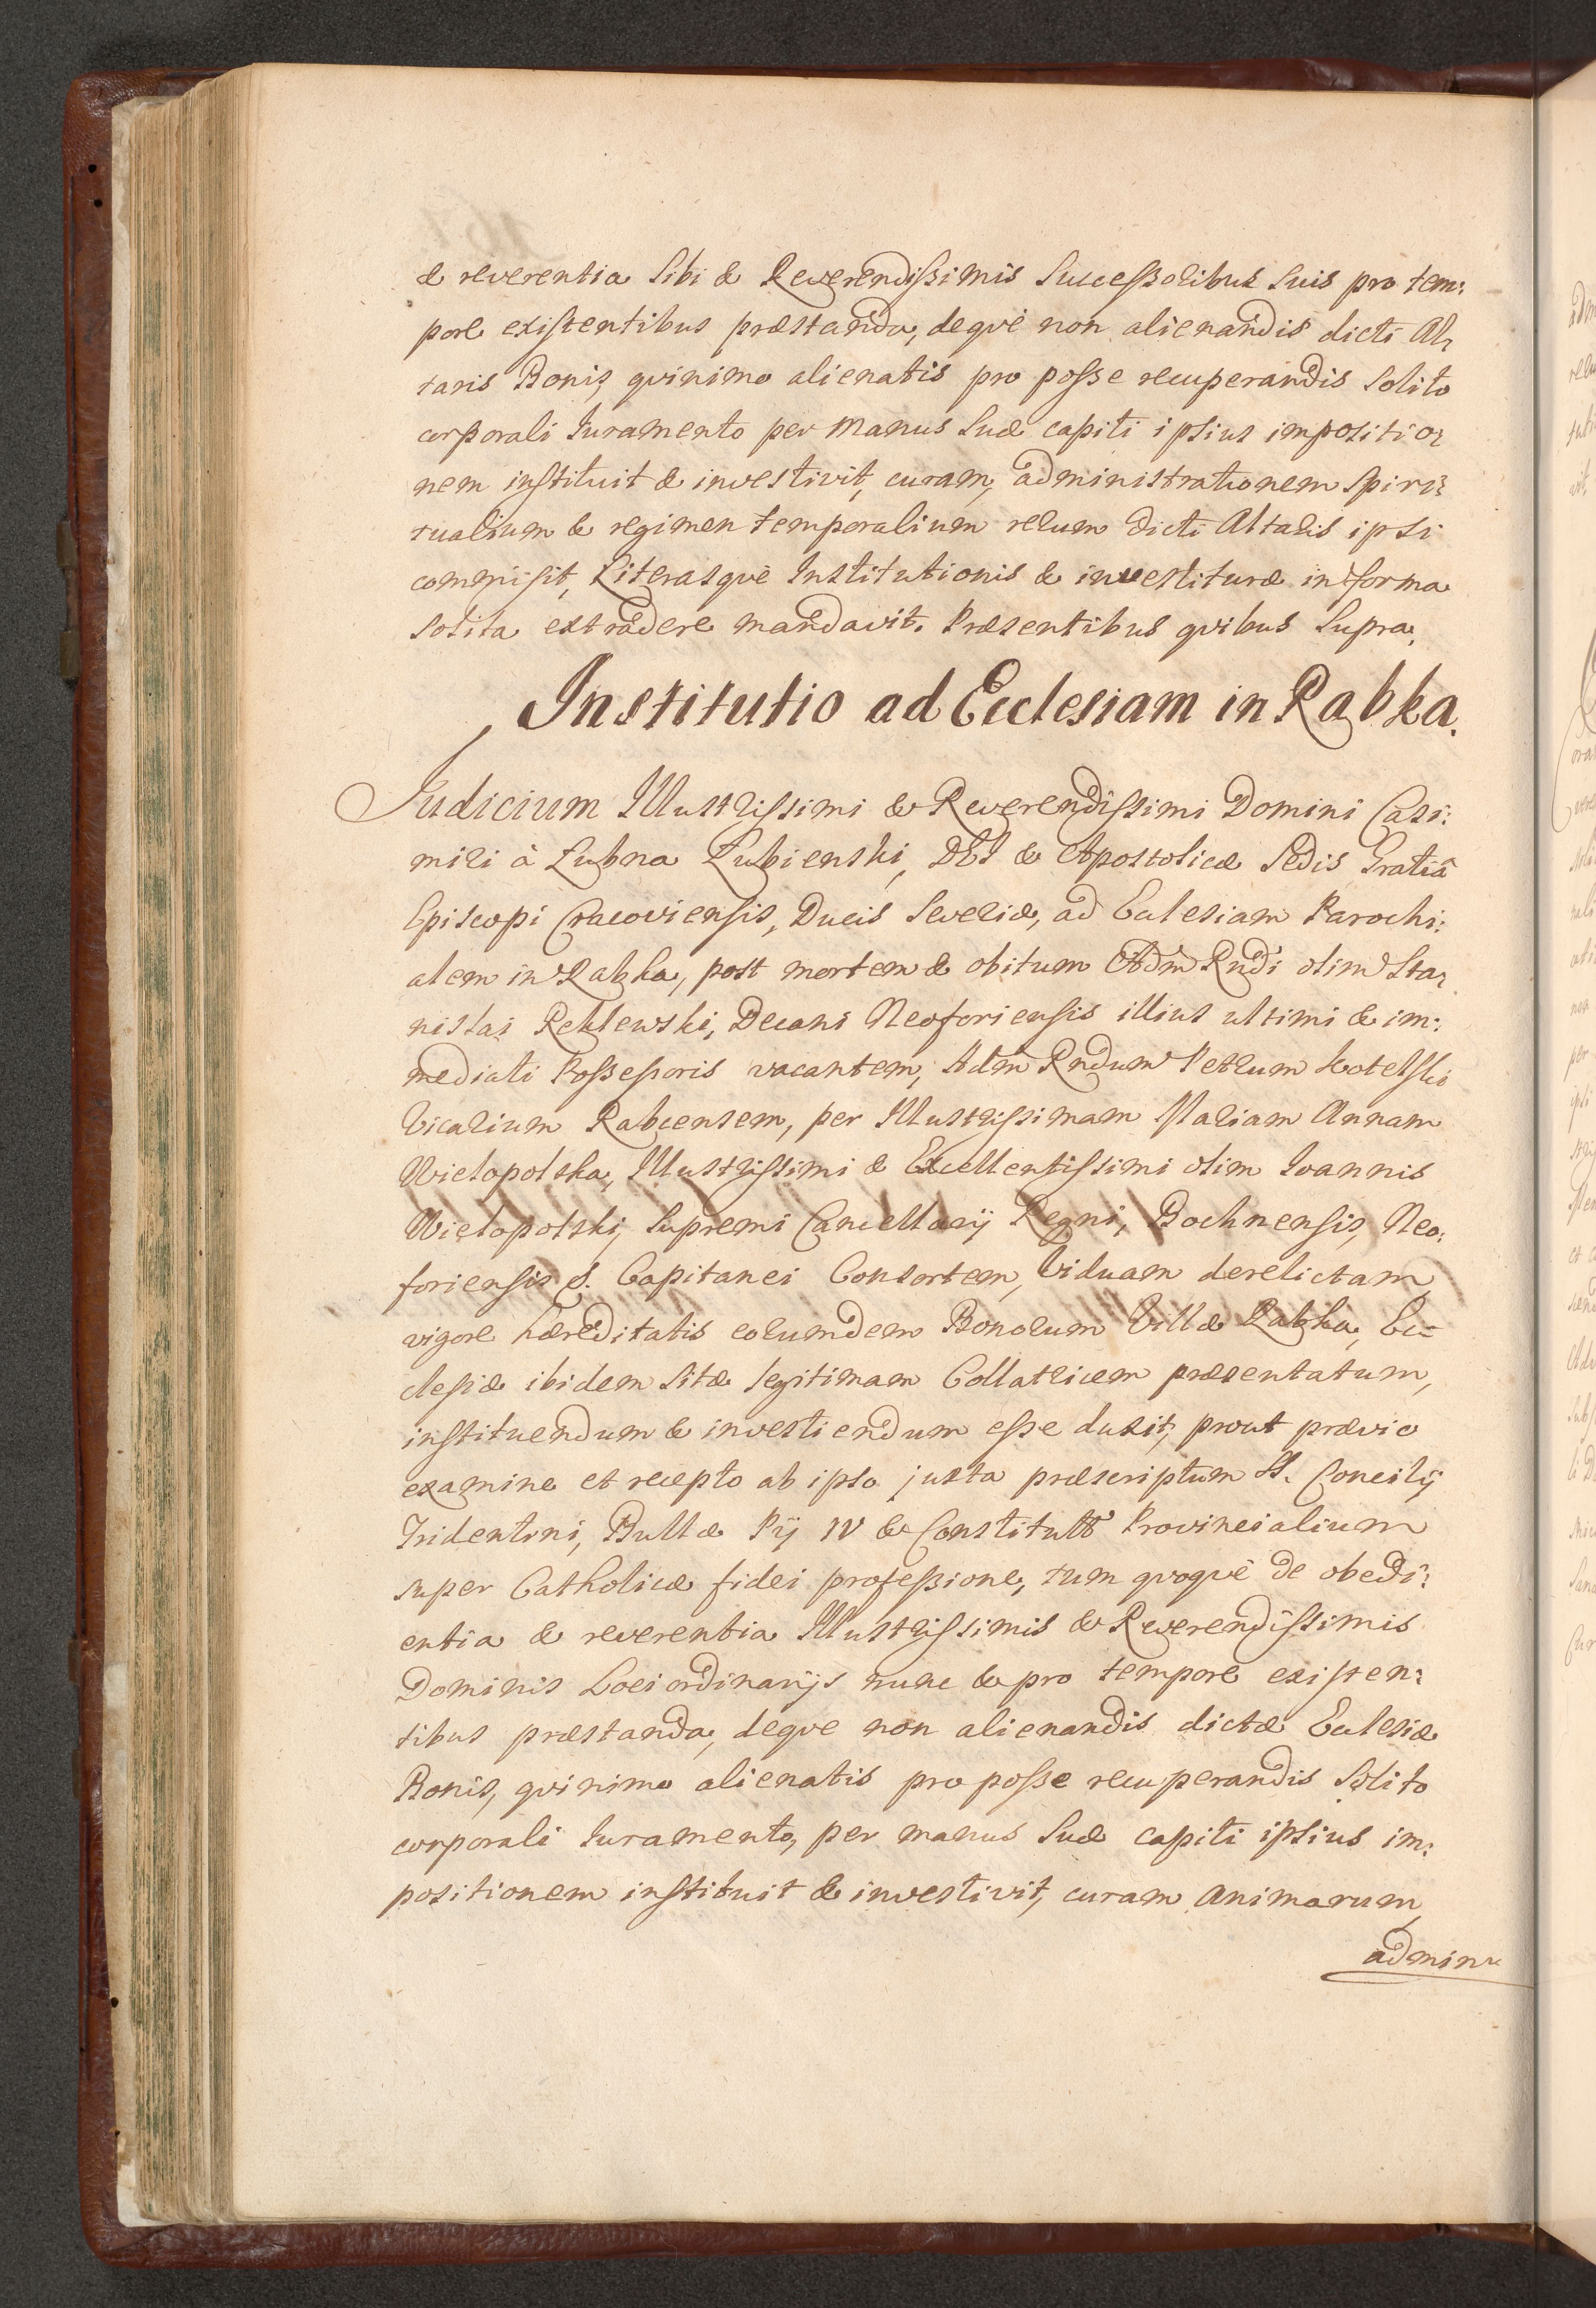 & reverentia Sibi & Reverendissimis Successoribus Suis pro tem:
pore existentibus præstanda, deqvè non alienandis dicti Al,
taris Bonis, qvinimo alienatis pro posse recuperandis Solito
corporali Iuramento per Manus Suæ capiti ipsius impositio,
nem instituit & investivit, curam, administrationem Spiri,
tualium & regimen temporalium rerum dicti Altaris ipsi
commisit, Literasqvè Institutionis & investituræ in forma
Solita extradere mandavit. Præsentibus qvibus Supra.
Institutio ad Ecclesiam in Rabka.
Iudicium Illustrissimi & Reverendissimi Domini Casi:
miri à Lubna Łubienski, DEI & Apostolicæ Sedis Gratiâ
Episcopi Cracoviensis, Ducis Severiæ, ad Ecclesiam Parochi:
alem in Rabka, post mortem & obitum Adm Rndi olim Sta,
nislai Reklewski, Decani Neoforiensis illius ultimi & im:
mediati Possessoris vacantem, Adm Rndum Petrum
Vicarium Rabcensem, per Illustrissimam Mariam Annam
Wielopolska, Illustrissimi & Excellentissimi olim Ioannis
Wielopolski, Supremi Cancellarij Regni, Bochnensis, Neo:
foriensis &. Capitanei Consortem, Viduam derelictam,
vigore hæreditatis eorumdem Bonorum Villæ Rabka, Ec=
clesiæ ibidem Sitæ legitimam Collatricem præsentatum,
instituendum & investiendum esse duxit, prout prævio
examine et recepto ab ipso juxta præscriptum S. Concilij
Tridentini, Bullæ Pij IV & Constitutt Provincialium
super Catholicæ fidei professione, tum qvoqvè de obedi:
entia & reverentia Illustrissimis & Reverendissimis
Dominis Loci ordinarijs nunc & pro tempore existen:
tibus præstanda, deqve non alienandis dictæ Ecclesiæ
Bonis, qvinimo alienatis pro posse recuperandis Solito
corporali Iuramento, per manus Suæ capiti ipsius im:
positionem instituit & investivit, curam Animarum,
admin